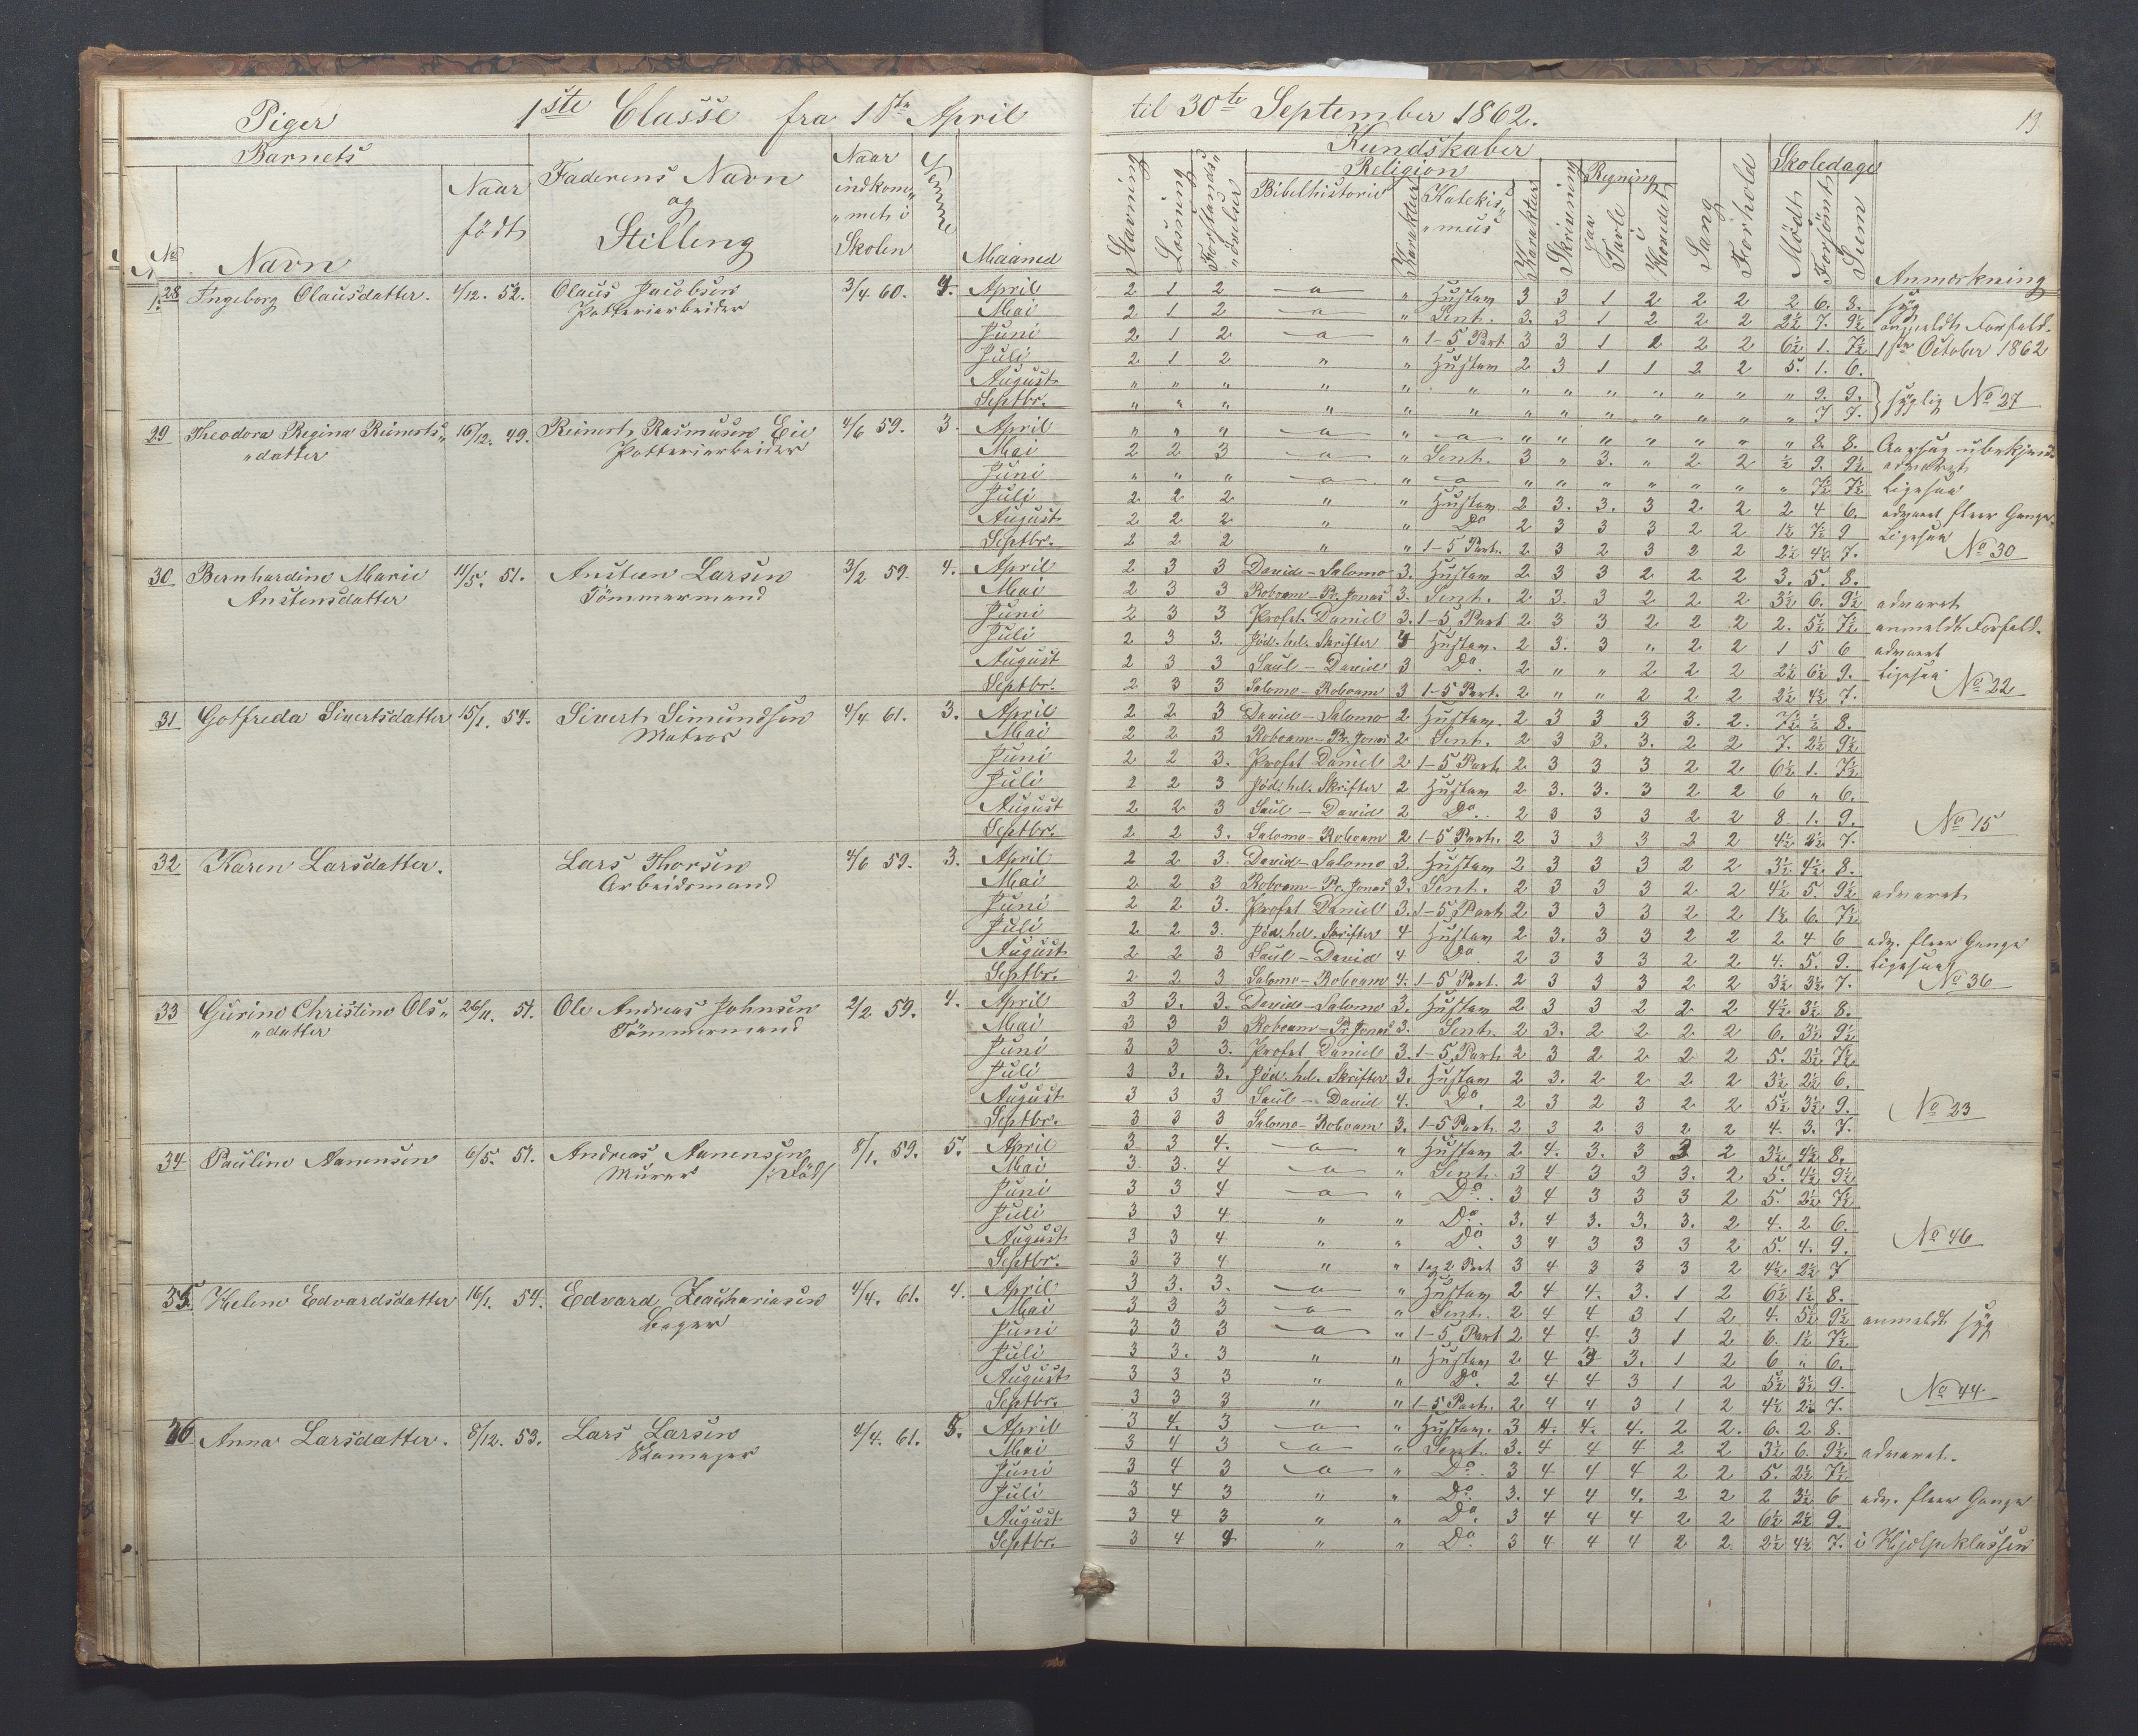 Piger 1ste Classe fra 1ste April
Barnets
No. Navn
Naar født
Faderens Navn og Stilling
Naar indkom- met i Skolen
Evnne
Maaned
28 Ingeborg Olausdatter. 4/12. 52. Olaus Jacobsen 3/4 60. 4. April
Pottariarbeider Mai
Juni
Juli
August
Septbr.
29 Theodora Regina Reinerts- 16/12. 49. Reinert Rasmusen Eie 4/6 59. 3. April
datter Pottariarbeider Mai
Juni
Juli
August
Septbr.
30 Bernhardine Marie 11/5. 51. Austeen Larsen 3/2 59. 4. April
Austensdatter Tømmermand Mai
Juni
Juli
August
Septbr.
31 Gotfreda Sivertsdatter 15/1. 54. Sivert Simundsen 4/4 61. 3. April
Matros Mai
Juni
Juli
August
Septbr.
32 Karen Larsdatter. Lars Thorsen 4/6 59. 3. April
Arbeidsmand Mai
Juni
Juli
August
Septbr.
33 Gurine Christine Ols- 26/11. 51. Ole Andreas Johnsen 2/2 59. 4. April
datter Tømmermand Mai
Juni
Juli
August
Septbr.
34 Pauline Aanensen 6/5. 51. Andreas Aanensen 8/1. 59. 5. April
Murer /: Død/ Mai
Juni
Juli
August
Septbr.
35 Helene Edvardsdatter 16/1. 54. Edvard Zachariasen 4/4. 61. 4. April
Bager Mai
Juni
Juli
August
Septbr.
36 Anna Larsdatter. 8/12. 53. Lars Larsen 4/4. 61. 5. April
Skomager Mai
Juni
Juli
August
Septbr.
til 30te September 1862. 13
Kundskaber
Religion
Regning
Skoledage
Stavning
Læsning
Forstands- øvelser
Bibelhistorie
Karakter
Katekis- mus
Karakter
Skrivning
paa Tavle
i Hovedet
Sang
Forhold
Mødt
Forsømt
Sum
Anmærkning
2 1 2 a " Hustav 3 3 1 2 2 2 2 6. 8. syg
2 1 2 a " Sent. 3. 3 1 2 2 2 2½ 7. 9½ anmeldt Forfald.
2 1 2 a " 1-5 Part 3 3 1 2 2 2 6½ 1. 7½ 1ste October 1862
2 1 2 " " Hustav 2 3 1 1 2 2 5. 1. 6.
" " " " " " " " " " " " " 9. 9.
" " " " " " " " " " " " " 7 7. syglig No 27
" " " a " a " " " " " " " 8. 8. Aarsag ubekjendt
2 2 3 a " Sent. 3 " 3. " 2 2 ½ 9. 9½ advaret
" " " a " a " " " " " " " 7½ 7½ Ligesaa
2 2 2 " " Hustav 2 3. 3. 3 2 2 2 4 6. advaret flere Gange.
2 2 2 " " Do 2 3 3 3 2 2 1½ 7½ 9 Ligesaa
2 2 2 " " 1-5 Part. 2 3 2 3 2 2 2½ 4½ 7. No 30
2 3 3 David-Salomo 3. Hustav 2 3 3 2 2 2 3. 5. 8.
2 3 3 Roboam-Pr. Jonas 3. Sent. 2 3. 3 2 2 2 3½ 6. 9½ advaret
2 3 3 Profet Daniel 3. 1-5 Part 2 3 3 2 2 2 2. 5½ 7½ anmeldt Forfald.
2 3 3. Jød. hel. Skrifter 4 Hustav. 2 3. 3 " 2 2 1 5 6 advaret
2 3 3 Saul - David 3 Do. 2 " " 2 2 2 2½ 6½ 9. Ligesaa
2 3 3 Salomo-Roboam 3 1-5 Part. 2 " " 2 2 2 2½ 4½ 7. No 22
2 2 3 David-Salomo 2 Hustav. 2 3 3 3 3. 2. 7½ ½ 8.
2 2 3 Roboam-Pr. Jonas 2 Sent. 2 3 3. 3. 2 2 7. 2½ 9½
2 2 3. Profet Daniel 2 1-5 Part 2 3 3 3 2 2 6½ 1. 7½
2 2 3 Jød. hel. Skrifter 2 Hustav 2 3. 3. 3 2 2 6 " 6.
2 2 3 Saul - David 2 Do. 2 3 3 3 2 2 8 1. 9.
2 2 3. Salomo-Roboam 2 1-5 Part. 2 3 3 3 2 2 4½ 2½ 7. No 15
2 2 3. David-Salomo 3. Hustav 2 3 3 3 2 2 3½ 4½ 8.
2 2 3 Roboam-Pr. Jonas 3. Sent. 2 3 3 3 2 2 4½ 5. 9½ advaret
2 2 3. Profet Daniel 3. 1-5 Part 2 3 3 3 2 2 1½ 6. 7½
2 2 3. Jød. hel. Skrifter 4 Hustav 2 3. 3 3 2 2 2 4 6 adv. flere Gange
2 2 3 Saul - David 4 Do 2 3 3 3 2 2 4. 5. 9. Ligesaa
2 2 3 Salomo-Roboam 4. 1-5 Part. 2 3 3 3 2 2 3½ 3½ 7. No 36
3 3. 3. David-Salomo 3. Hustav 2 3 3 2 2 2 4½ 3½ 8.
3 3 3 Roboam-Pr. Jonas 3. Sent. 2 3. 2 2 2 2 6. 3½ 9½
3 3 3. Profet Daniel 3. 1-5 Part. 2 3 2 2 2 2 5. 2½ 7½
3 3. 3. Jød. hel. Skrifter 3. Hustav 2 3. 2 2 2 2 3½ 2½ 6.
3 3 3 Saul - David 4. Do. 2 3 2 3 2 2 5½ 3½ 9.
3 3 3 Salomo-Roboam 3. 1-5 Part. 2 3 2 3 2 2 4. 3. 7. No 23
3 3 4. a " Hustav 2 4. 3. 3 3 2 3½ 4½ 8.
3 3. 4 a " Sent. 3 4 3 3 3. 2 5. 4½ 9½
3 3 4 a " Do. 3 4 3 3 3 2 5. 2½ 7½
3 3 4 " " Do. 3. 4 3. 3. 3. 2 4. 2 6.
3 3 4 " " Do 3 4 3 3 3 2 5. 4. 9.
3 3 4 " " 1 og 2 Part 3 4 3 3 3 2 4½ 2½ 7 No 46
3 3. 3. a " Hustav 2 4 4. 3. 1 2 6½ 1½ 8.
3 3 3 a " Sent. 2 4 4 3 1 2 4. 5½ 9½ anmeldt syg
3 3 3 a " 1-5 Part 2 4 4 3 1 2 6. 1½ 7½
3 3. 3 " " Hustav 2 4 3 3. 1 2 6 " 6.
3 3 3 " " Do. 2 4 4 3 1 2 5½ 3½ 9.
3 3 3 " " 1-5 Part. 2 4 4 3 1 2 4½ 2½ 7. No 44
3 4. 3 a " Hustav. 3 4. 4. 4. 2 2. 6. 2 8.
3 4 3 a " Sent. 3. 4 4 4 2 2 3½ 6. 9½ advaret.
3 4 3 a " Do. 3 4 4 4 2 2 5. 2½ 7½
3 4 3 " " Do. 3. 4 4 4. 2 2 2 3½ 6 adv. flere Gange
3 4 3 " " Do. 3 4 4 4 2 2 6½ 2½ 9.
3 4 4 " " Do. 3 4 4 4 2 2 2½ 4½ 7. i Hjelpeklassen